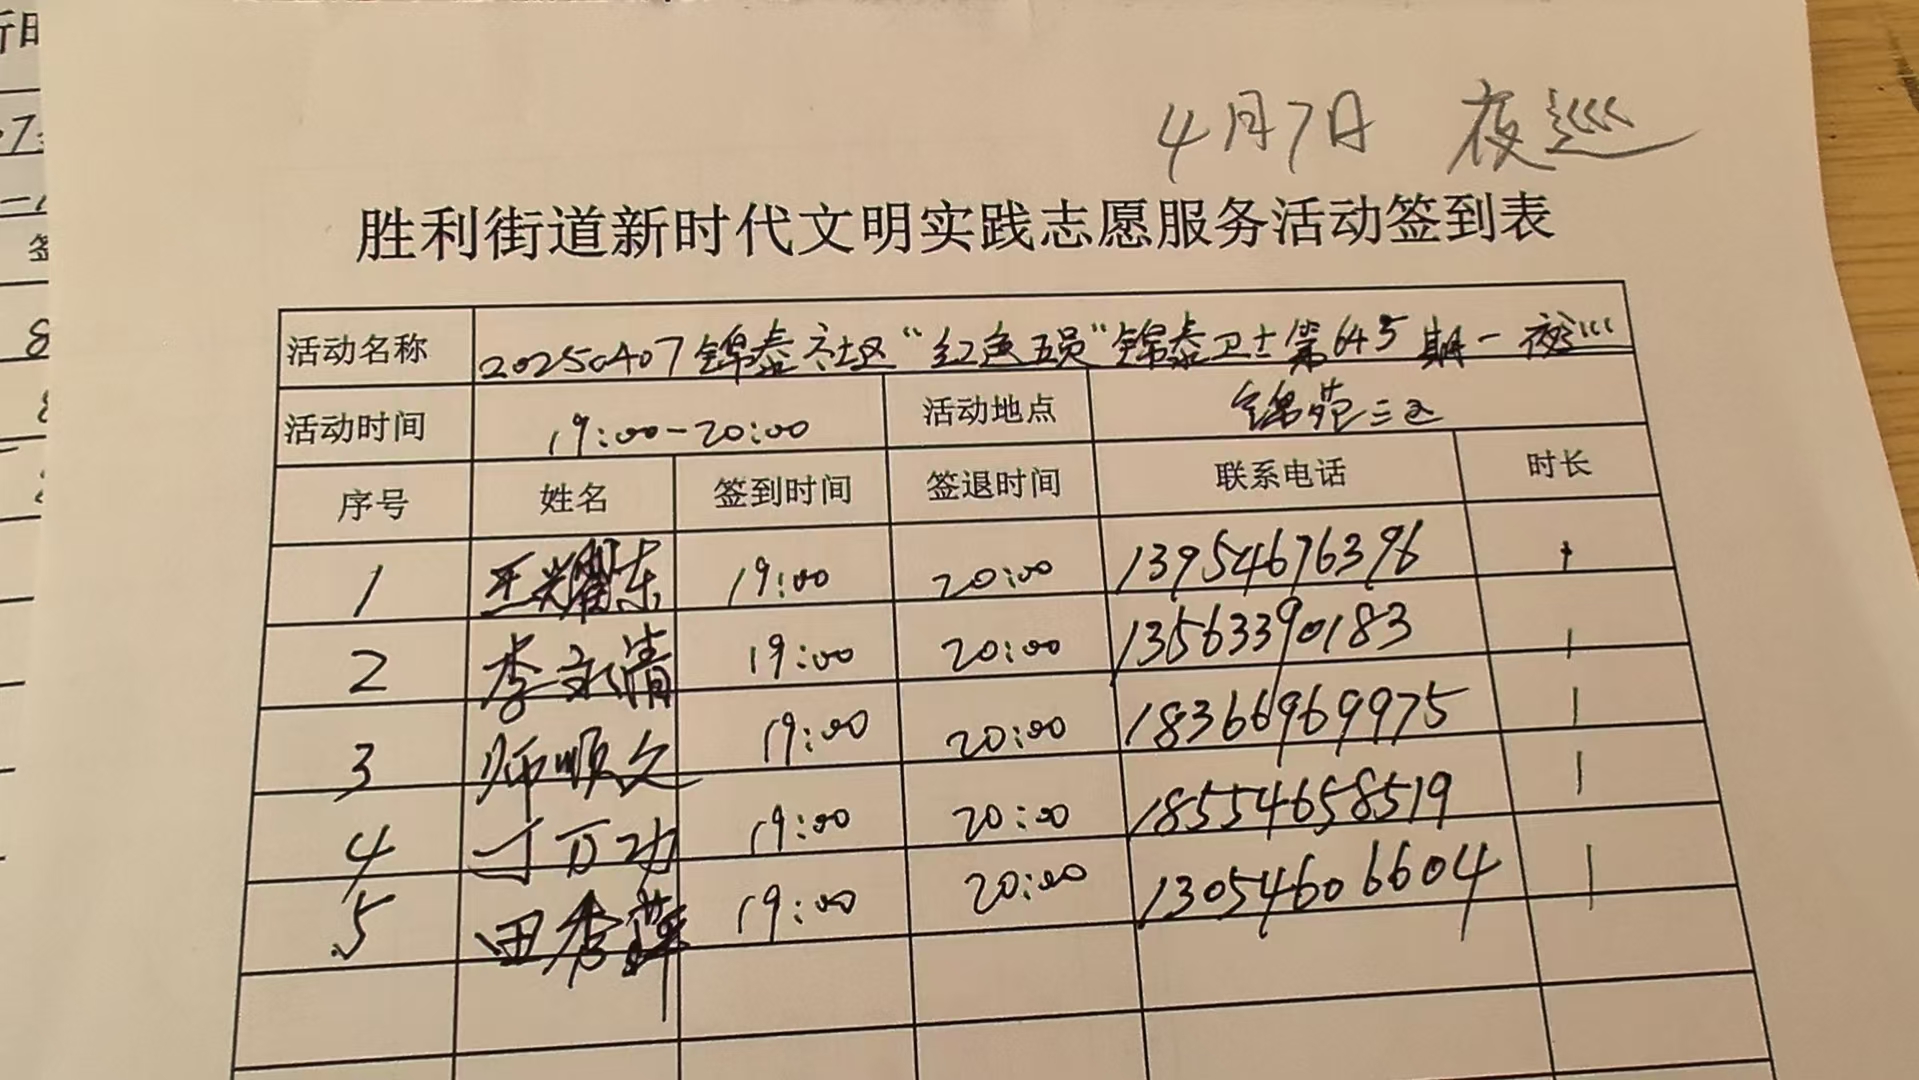 4月7日 夜巡
胜利街道新时代文明实践志愿服务活动签到表
活动名称 20250407锦泰社区“红色五员”锦泰卫士第645期一夜巡
活动时间 19:00-20:00 活动地点 锦苑三区
序号 姓名 签到时间 签退时间 联系电话 时长
1 王耀东 19:00 20:00 13954676396 1
2 李文清 19:00 20:00 13563390183 1
3 师顺文 19:00 20:00 18366969975 1
4 丁万功 19:00 20:00 18554658519 1
5 田秀萍 19:00 20:00 13054606604 1